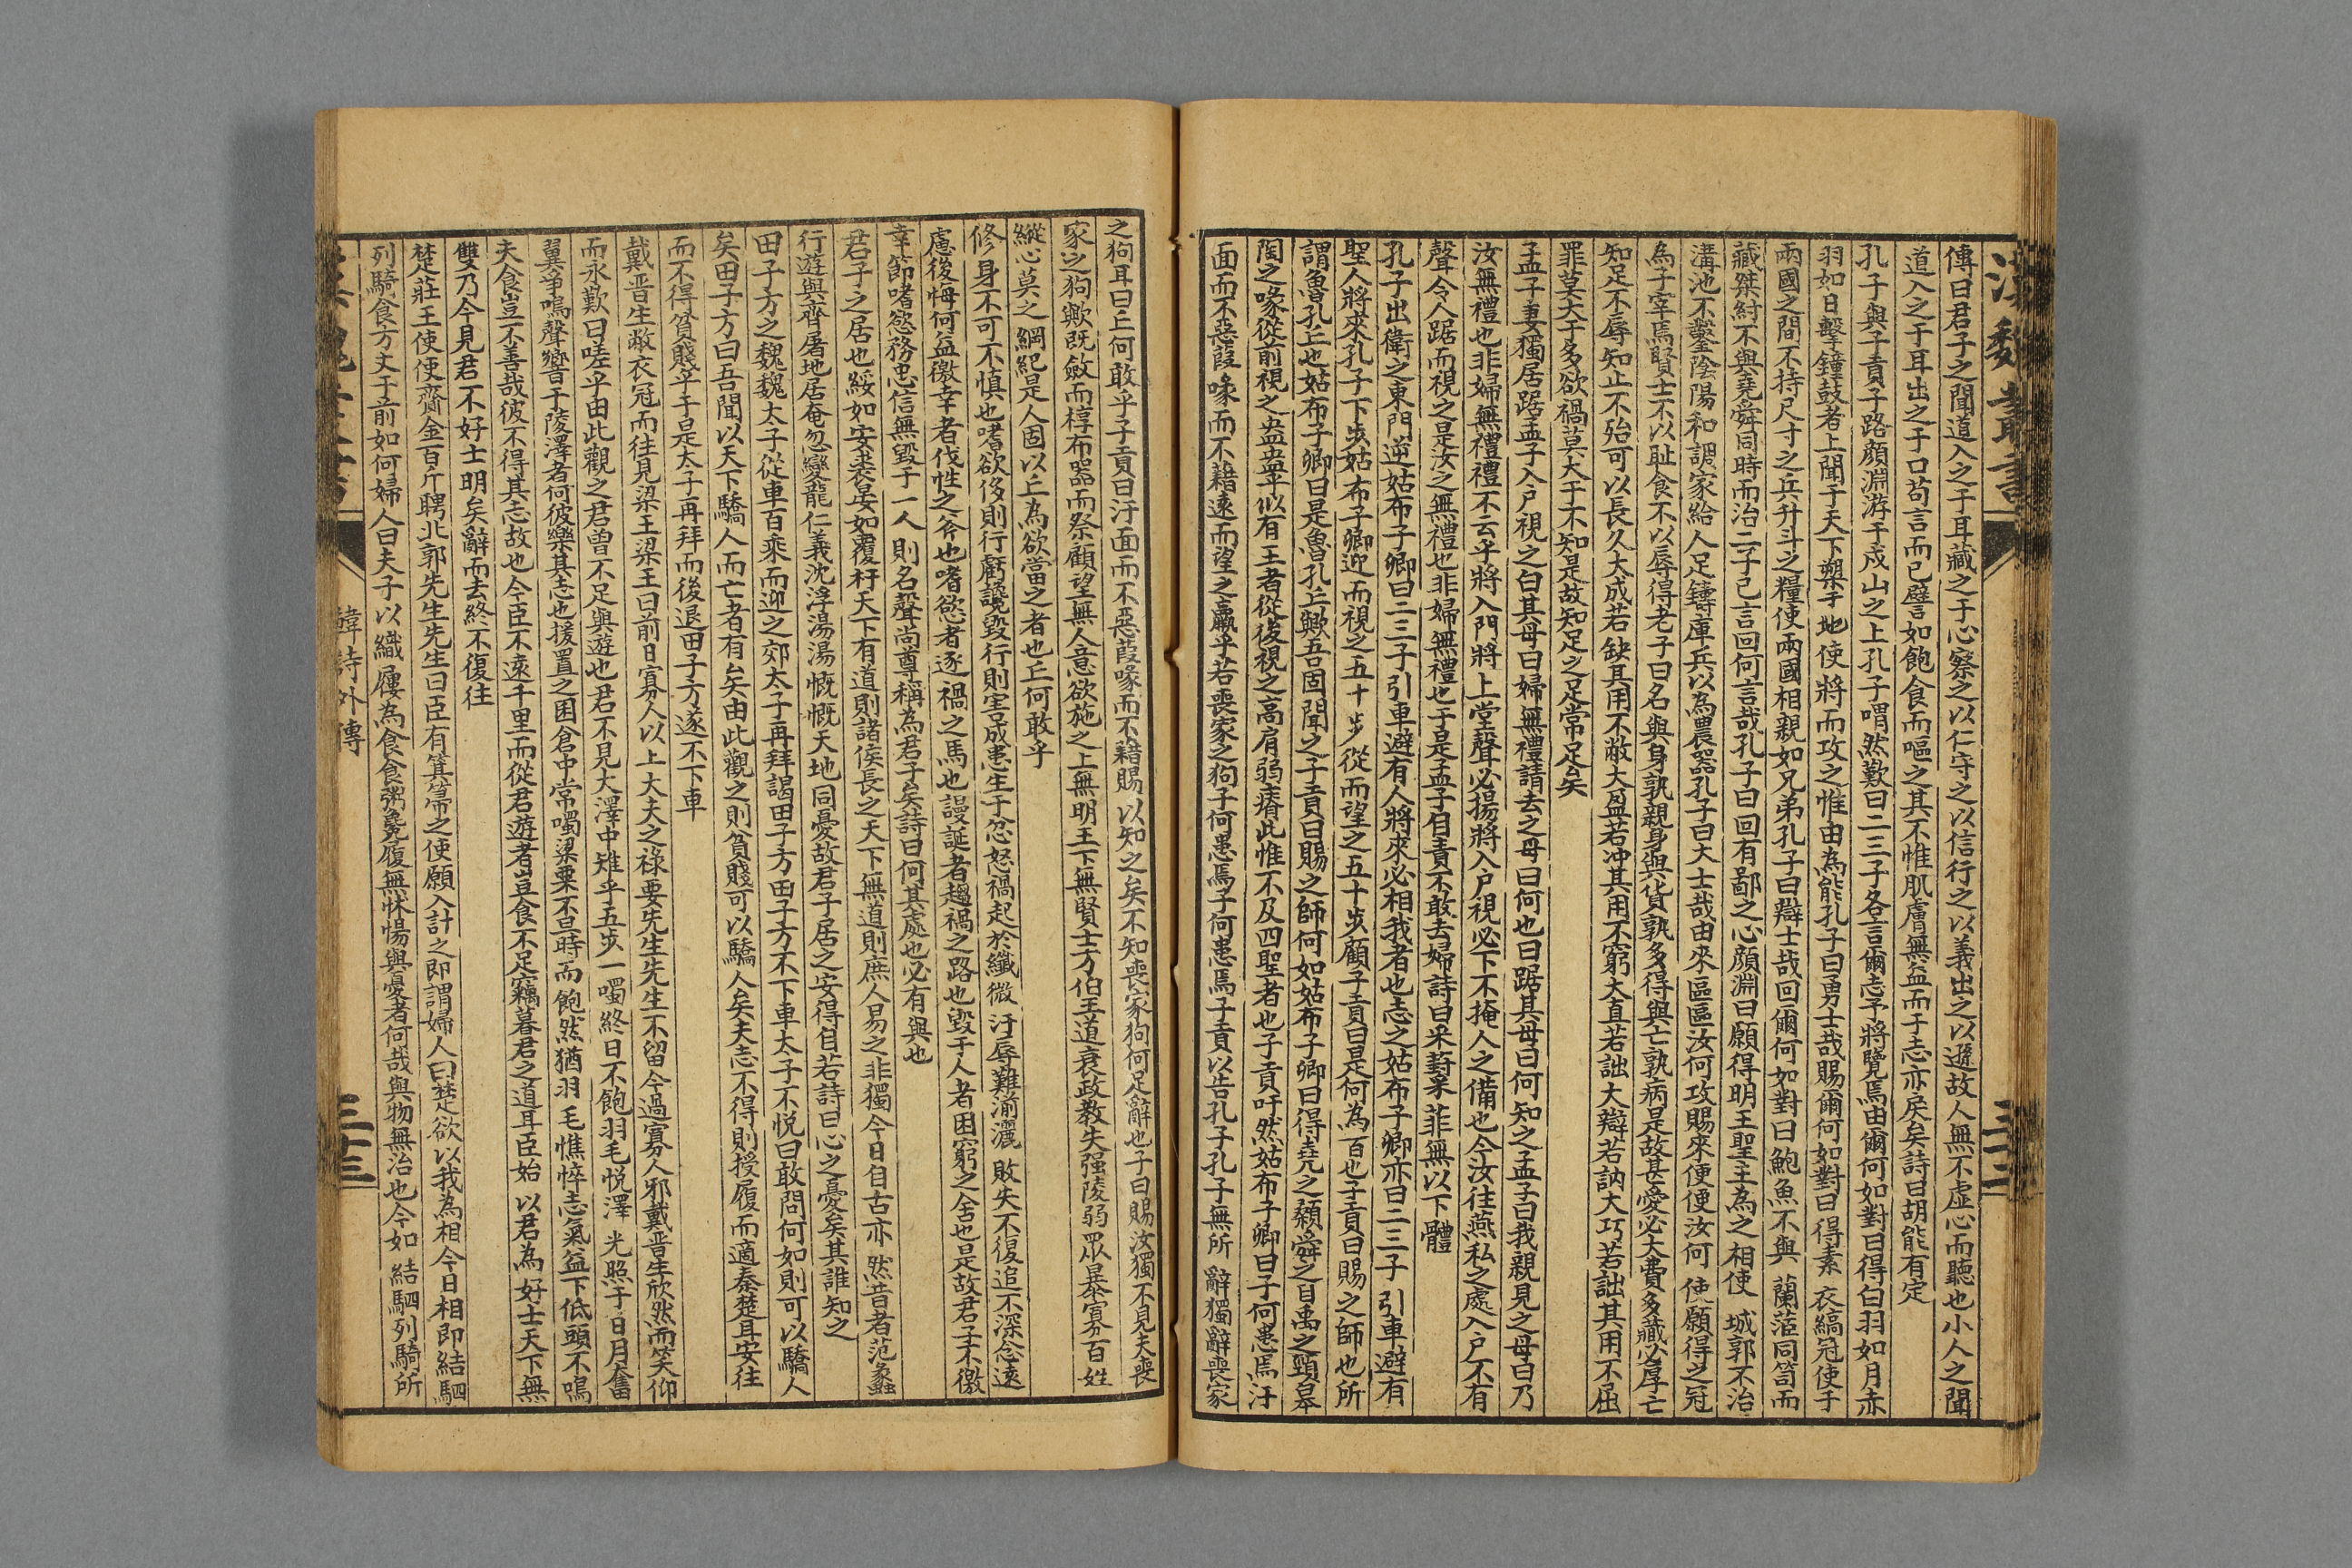 漢魏叢書
三十二
傳曰君子之聞道入之于耳藏之于心察之以仁守之以信行之以義出之以遜故人無不虛心而聽也小人之聞
道入之于耳出之于口苟言而已譬如飽食而嘔之其不惟肌膚無益而于志亦戾矣詩曰胡能有定
孔子與子貢子路顏淵游于戎山之上孔子喟然歎曰二三子各言爾志予將覽焉由爾何如對曰得白羽如月赤
羽如日擊鐘鼓者上聞于天下槊于地使將而攻之惟由為能孔子曰勇士哉賜爾何如對曰得素衣縞冠使于
兩國之間不持尺寸之兵升斗之糧使兩國相親如兄弟孔子曰辯士哉回爾何如對曰鮑魚不與蘭茝同笥而
藏桀紂不與堯舜同時而治二子已言回何言哉孔子曰回有鄙之心顏淵曰願得明王聖主為之相使城郭不治
溝池不鑿陰陽和調家給人足鑄庫兵以為農器孔子曰大士哉由來區區汝何攻賜來便便汝何使願得之冠
為子宰焉賢士不以耻食不以辱得老子曰名與身孰親身與貨孰多得與亡孰病是故甚愛必大費多藏必厚亡
知足不辱知止不殆可以長久大成若缺其用不敝大盈若冲其用不窮大直若詘大辯若訥大巧若詘其用不屈
罪莫大于多欲禍莫大于不知是故知足之足常足矣
孟子妻獨居踞孟子入戶視之白其母曰婦無禮請去之母曰何也曰踞其母曰何知之孟子曰我親見之母曰乃
汝無禮也非婦無禮禮不云乎將入門將上堂聲必揚將入戶視必下不掩人之備也今汝往燕私之處入戶不有
聲令人踞而視之是汝之無禮也非婦無禮也于是孟子自責不敢去婦詩曰采葑采菲無以下體
孔子出衛之東門逆姑布子卿曰二三子引車避有人將來必相我者也志之姑布子卿亦曰二三子引車避有
聖人將來孔子下步姑布子卿迎而視之五十步從而望之五十步顧子貢曰是何為百也子貢曰賜之師也所
謂魯孔丘也姑布子卿曰是魯孔丘歟吾固聞之子貢曰賜之師何如姑布子卿曰得堯之顙舜之目禹之頸皋
陶之喙從前視之盎盎乎似有王者從後視之高肩弱瘠此惟不及四聖者也子貢吁然姑布子卿曰子何患焉汙
面而不惡葭喙而不藉遠而望之羸乎若喪家之狗子何患焉子何患焉子貢以告孔子孔子無所辭獨辭喪家
之狗耳曰丘何敢乎子貢曰汙面而不惡葭喙而不藉賜以知之矣不知喪家狗何足辭也子曰賜汝獨不見夫喪
家之狗歟既斂而椁布器而祭顧望無人意欲施之上無明王下無賢士方伯王道衰政教失强陵弱眾暴寡百姓
縱心莫之綱紀是人固以丘為欲當之者也丘何敢乎
修身不可不慎也嗜欲侈則行虧讒毀行則害成患生于忿怒禍起於纖微汙辱難湔灑敗失不復追不深念遠
慮後悔何益徼幸者伐性之斧也嗜慾者逐禍之馬也謾誕者趨禍之路也毀于人者困窮之舍也是故君子不徼
幸節嗜慾務忠信無毀于一人則名聲尚尊稱為君子矣詩曰何其處也必有與也
君子之居也綏如安裘晏如覆杅天下有道則諸侯長之天下無道則庶人易之非獨今日自古亦然昔者范蠡
行遊與齊屠地居奄忽變龍仁義沈浮湯湯慨慨天地同憂故君子居之安得自若詩曰心之憂矣其誰知之
田子方之魏魏太子從車百乘而迎之郊太子再拜謁田子方田子方不下車太子不悅曰敢問何如則可以驕人
矣田子方曰吾聞以天下驕人而亡者有矣由此觀之則貧賤可以驕人矣夫志不得則授履而適秦楚耳安往
而不得貧賤乎于是太子再拜而後退田子方遂不下車
戴晋生敝衣冠而往見梁王梁王曰前日寡人以上大夫之祿要先生先生不留今過寡人邪戴晋生欣然而笑仰
而永歎曰嗟乎由此觀之君曾不足與遊也君不見大澤中雉乎五步一噣終日不飽羽毛悅澤光照于日月奮
翼爭鳴聲響于陵澤者何彼樂其志也援置之囷倉中常噣梁粟不旦時而飽然猶羽毛憔悴志氣益下低頭不鳴
夫食豈不善哉彼不得其志故也今臣不遠千里而從君遊者豈食不足竊慕君之道耳臣始以君為好士天下無
雙乃今見君不好士明矣辭而去終不復往
楚莊王使使齎金百斤聘北郭先生先生曰臣有箕箒之使願入計之即謂婦人曰楚欲以我為相今日相即結駟
列騎食方丈于前如何婦人曰夫子以織屨為食食粥毚履無怵惕與憂者何哉與物無治也今如結駟列騎所
韓詩外傳
三十三